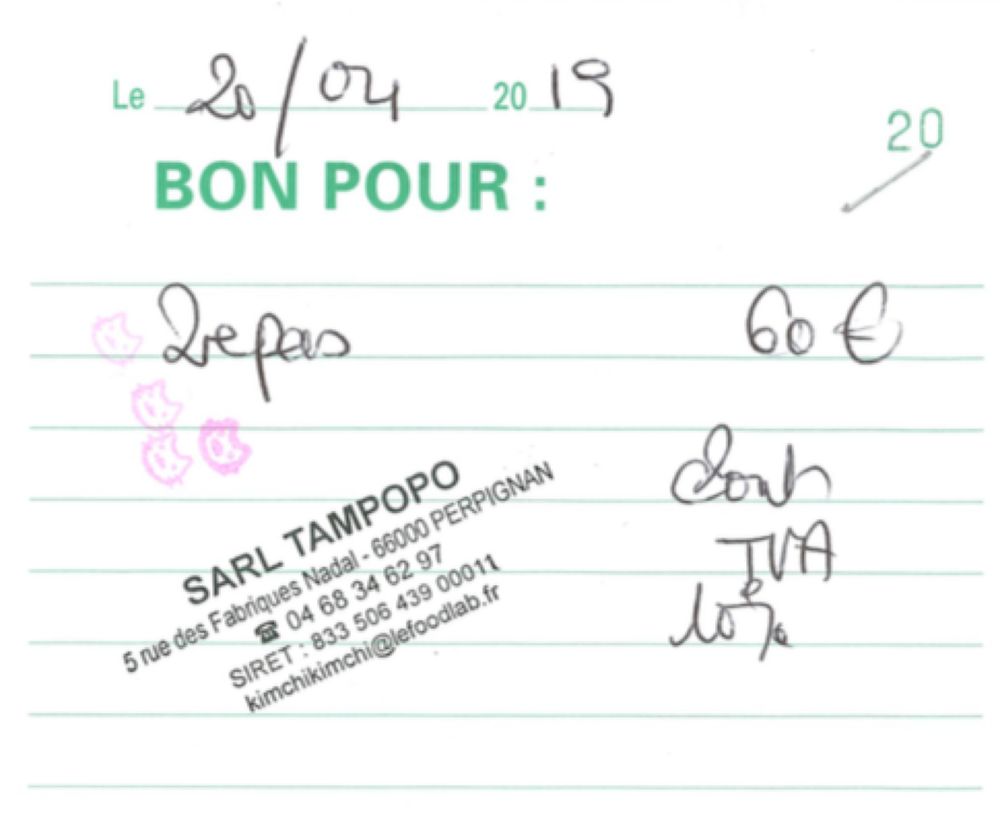 Le 20/04 2019
20
BON POUR :
2repas 60 €
dont
TVA
10%
SARL TAMPOPO
5 rue des Fabriques Nadal - 66000 PERPIGNAN
☎ 04 68 34 62 97
SIRET : 833 506 439 00011
kimchikimchi@lefoodlab.fr